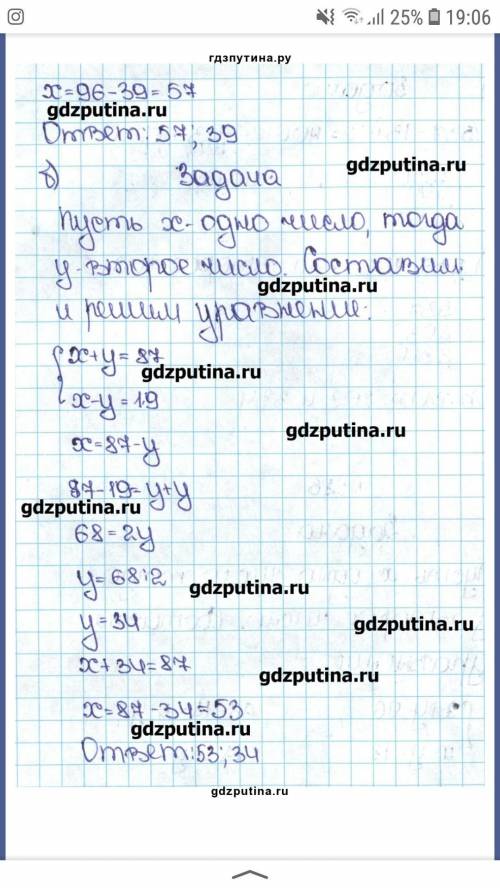 25% 19:06
гдзпутина.ру
x=96-39=57
gdzputina.ru
Ответ: 57; 39
gdzputina.ru
б) Задача
Пусть x-одно число, тогда
y-второе число. Составим
gdzputina.ru
и решим уравнение:
x+y=87
gdzputina.ru
x-y=19
gdzputina.ru
x=87-y
87-19=y+y
gdzputina.ru
68=2y
y=68:2
gdzputina.ru
y=34
gdzputina.ru
x+34=87
gdzputina.ru
x=87-34=53
gdzputina.ru
Ответ: 53; 34
gdzputina.ru